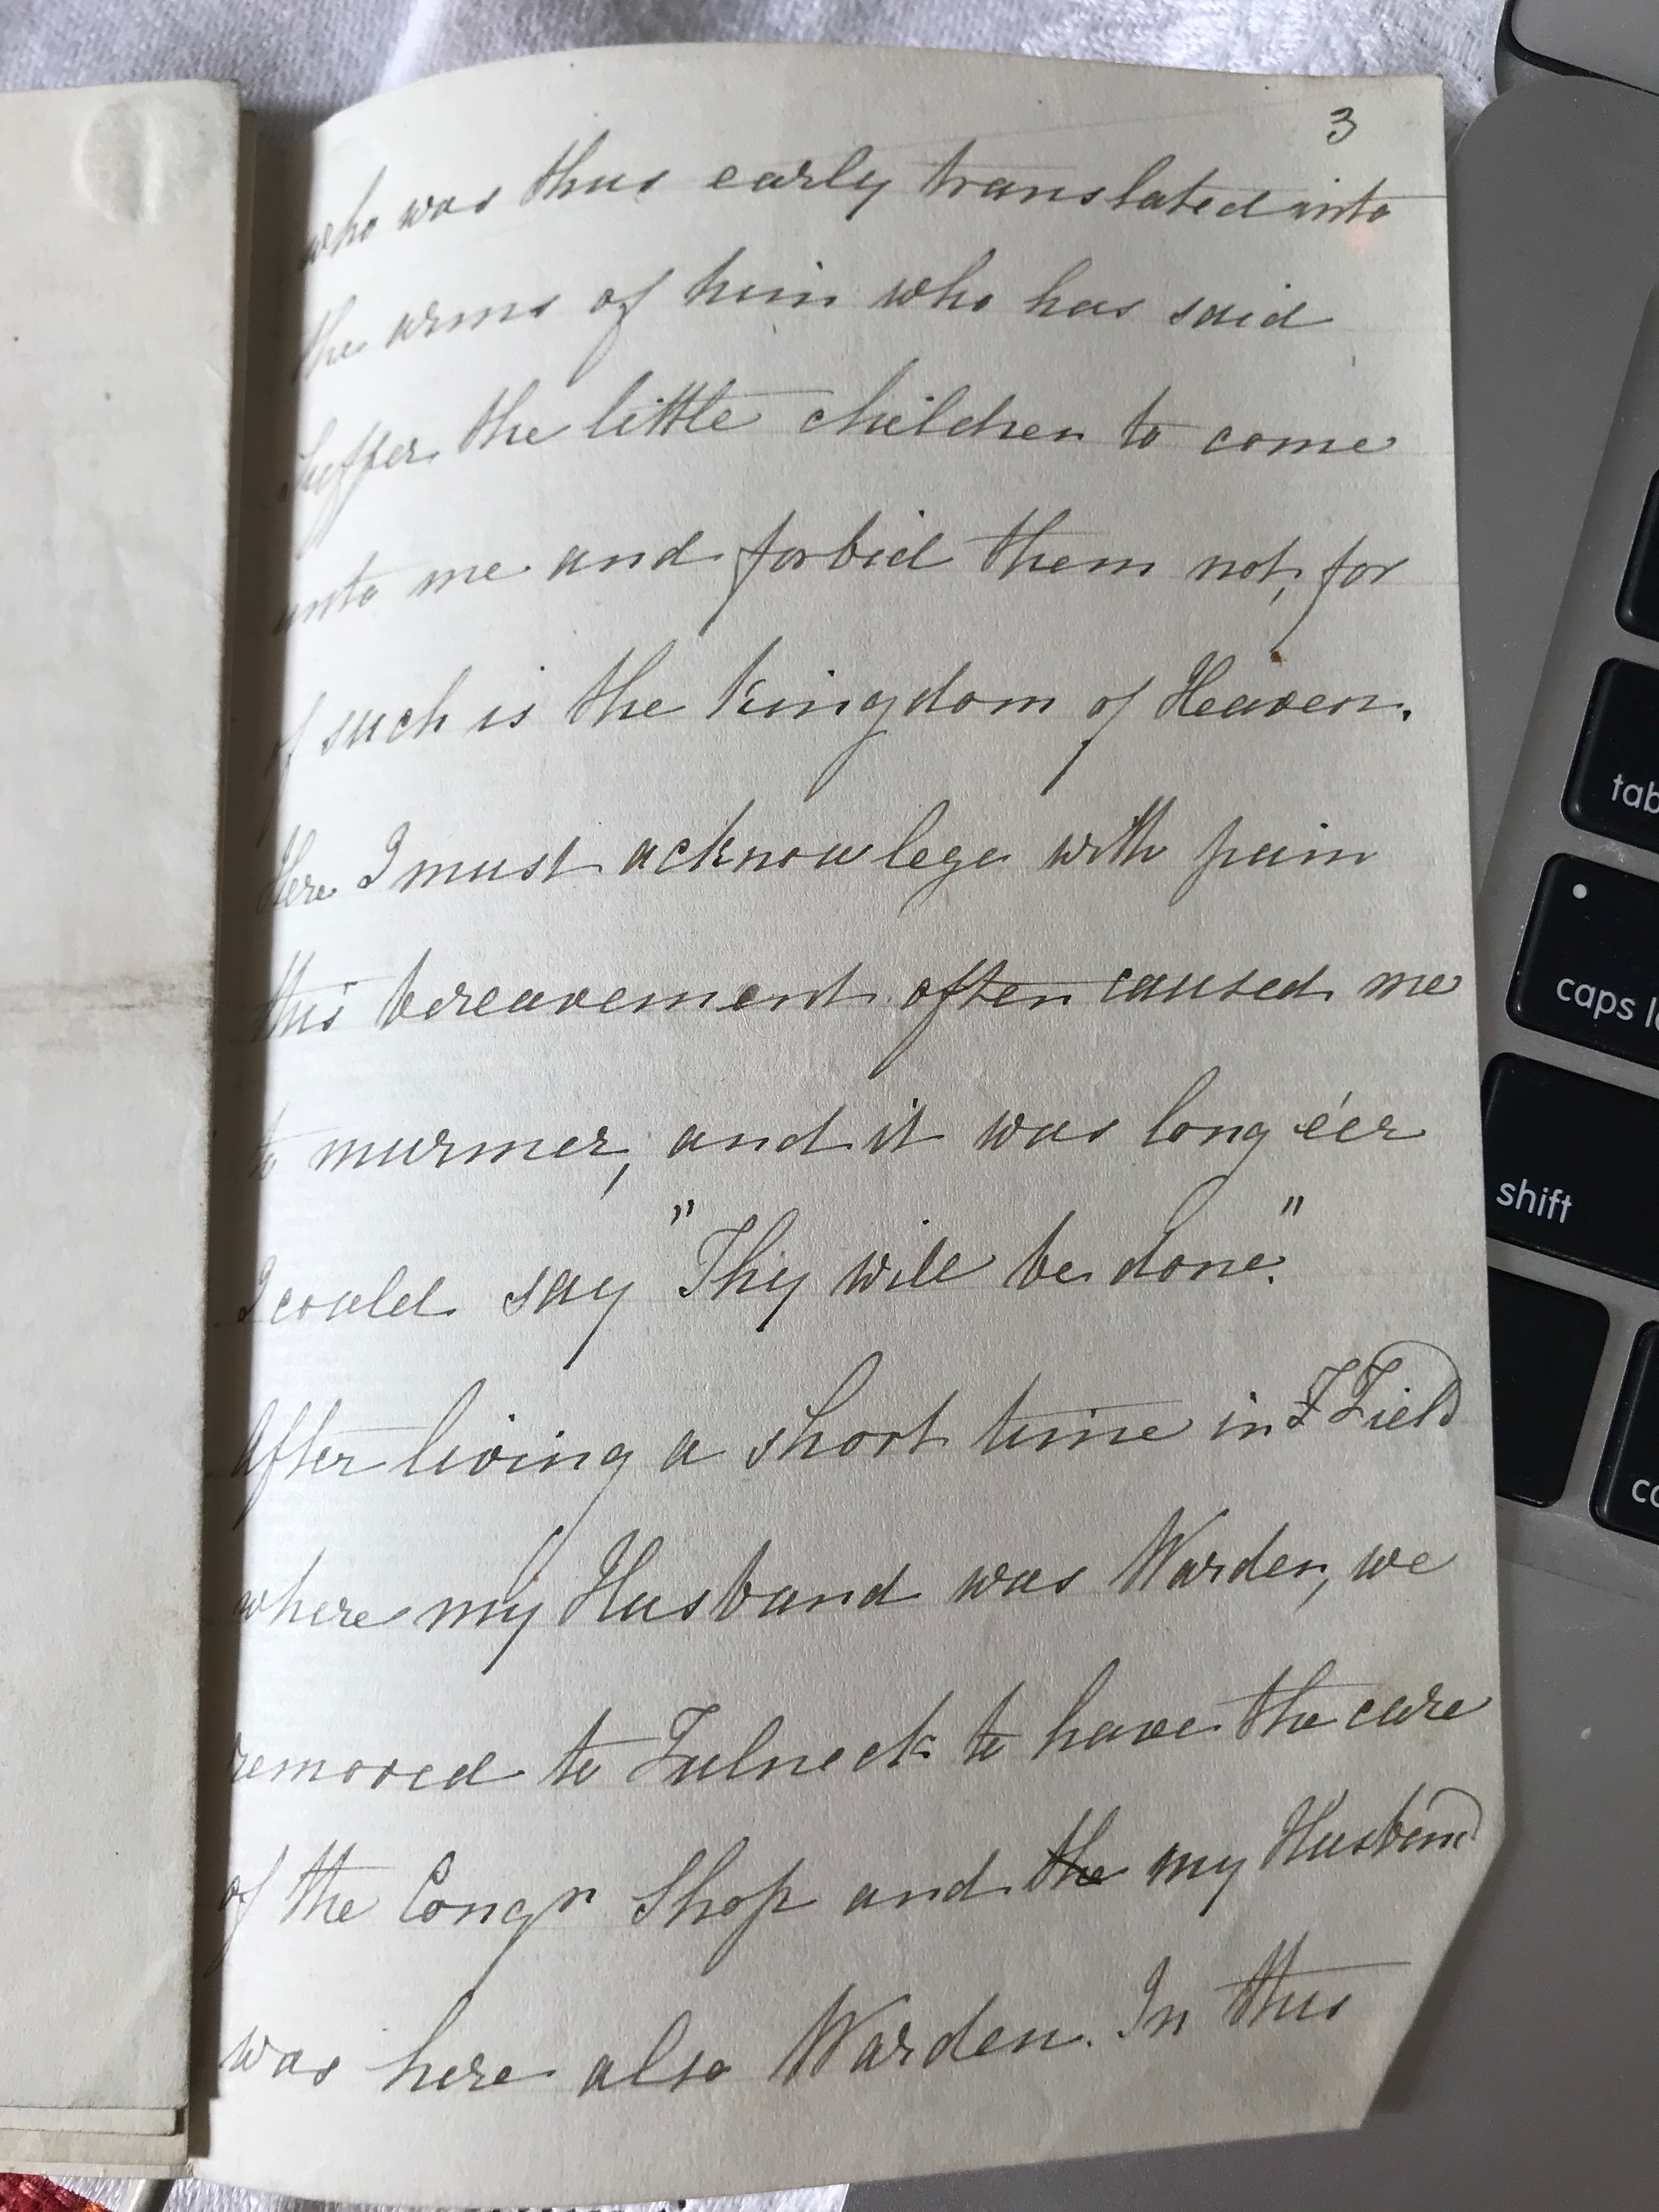 3
who was thus early translated into
the arms of him who has said
Suffer the little children to come
unto me and forbid them not, for
of such is the Kingdom of Heaven.
Here I must acknowlege with pain
this bereavement often caused me
to murmer, and it was long e'er
I could say "Thy will be done."
After living a short time in F Field
where my Husband was Warden, we
removed to Fulneck to have the care
of the Congn Shop and the my Husband
was here also Warden. In this
tab
caps l
shift
co